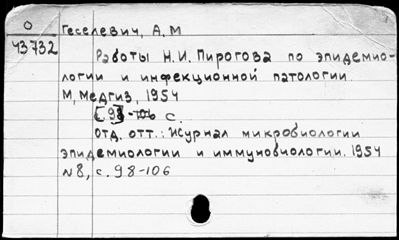 О
43732
Геселевич, А.М
Работы Н.И. Пирогова по эпидемио-
логии и инфекционной патологии.
М, Медгиз, 1954
[98-106 с.
Отд. отт.: Журнал микробиологии
эпидемиологии и иммунобиологии. 1954
N8, с. 98-106